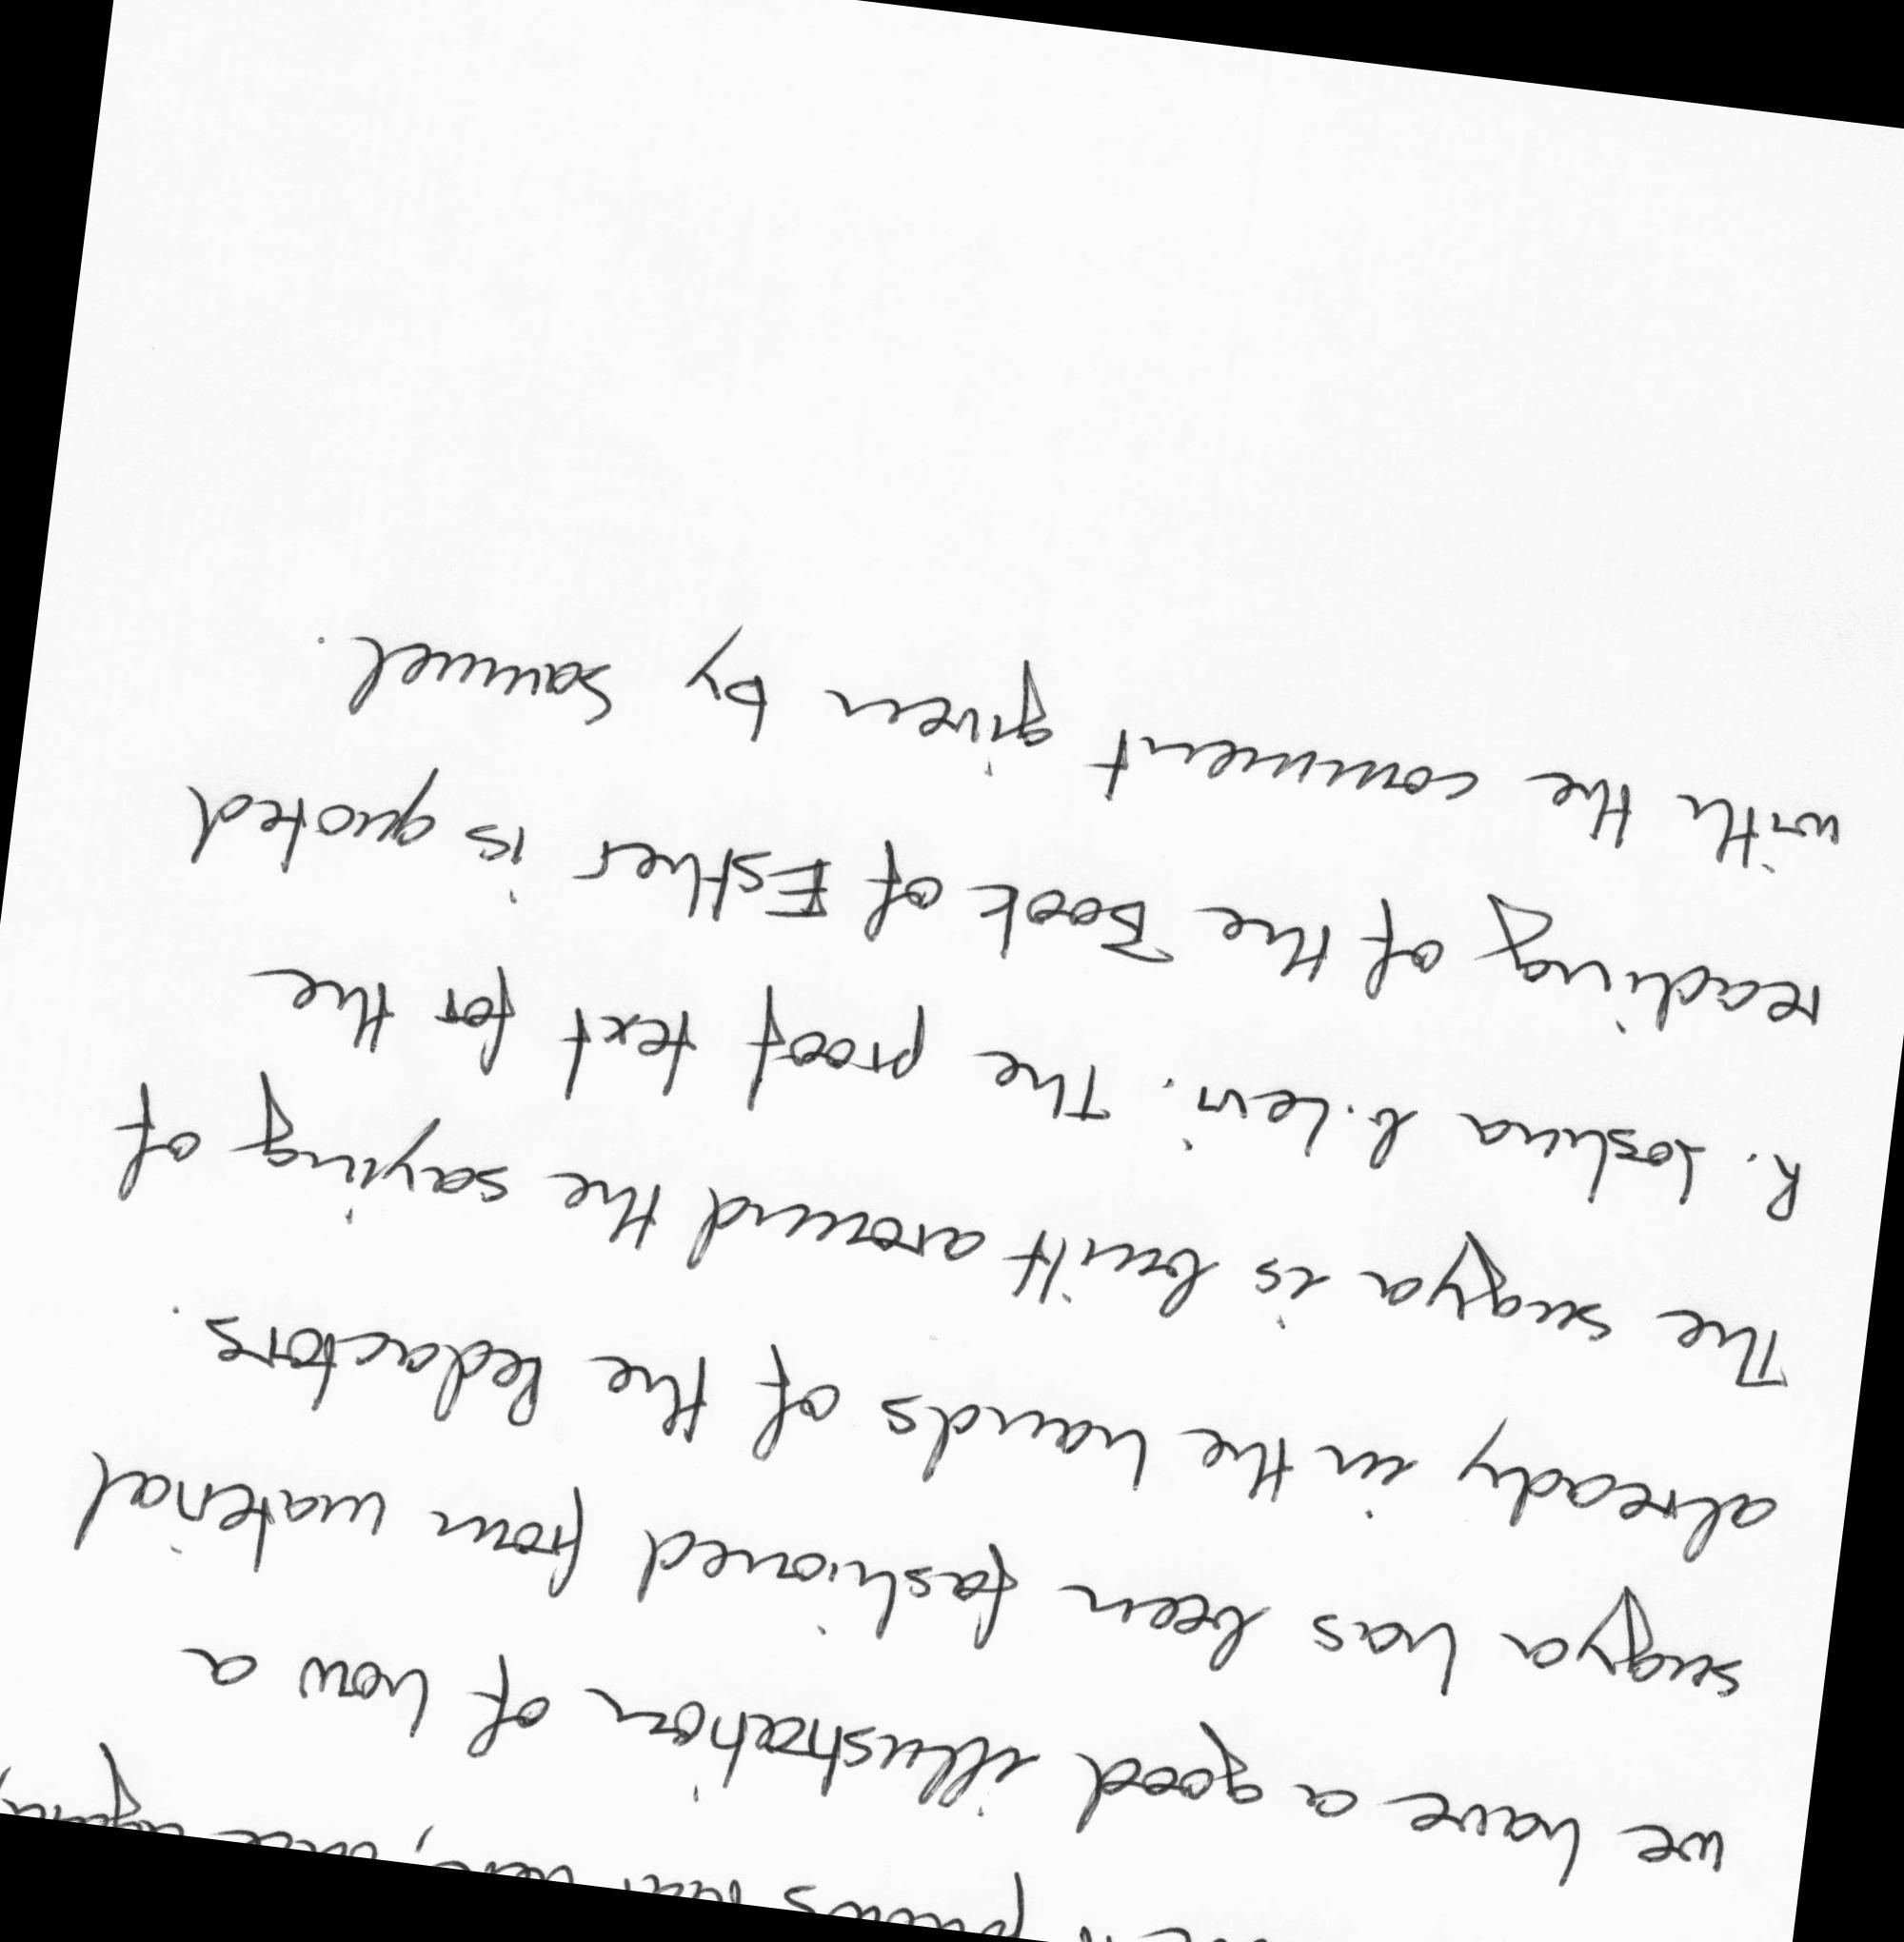 here, once again,
we have a good illustration of how a
sugya has been fashioned from material
already in the hands of the Redactors.
The sugya is built around the saying of
R. Joshua b. Levi. The proof text for the
reading of the Book of Esther is quoted
with the comment given by Samuel.